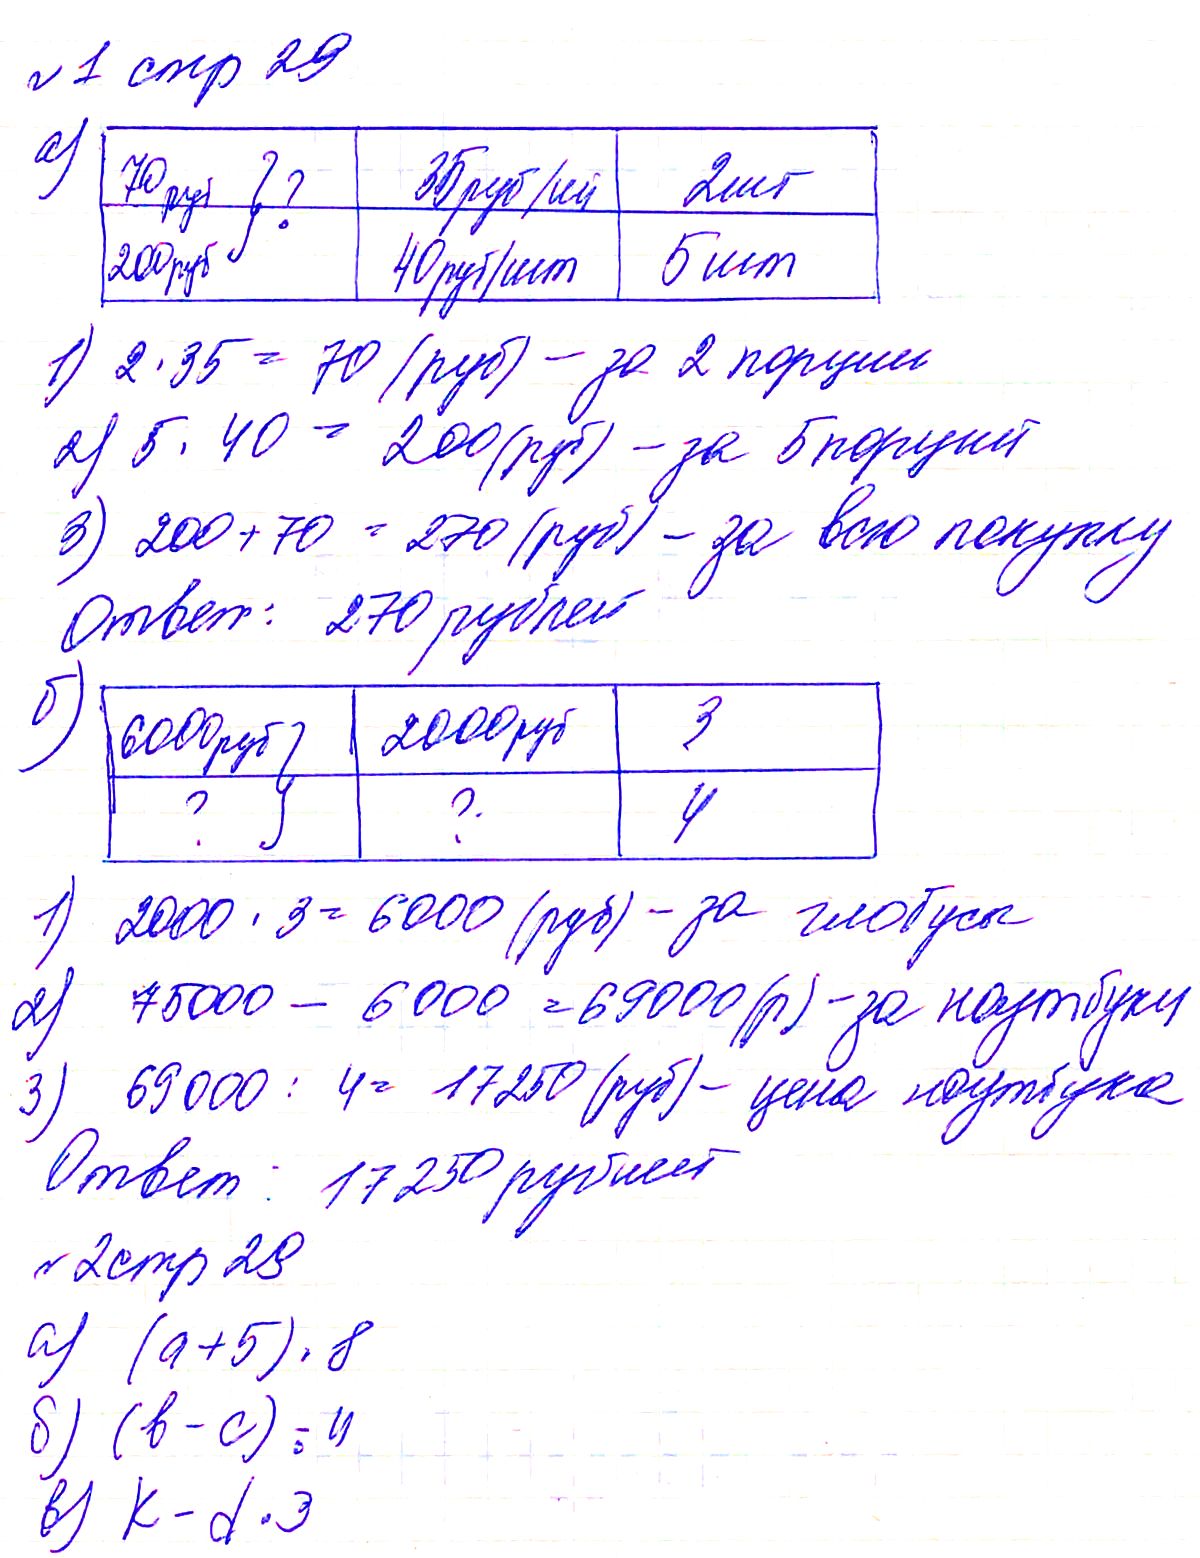 №1 стр 29
а)
70руб } ? 35руб/шт 2шт
200руб 40руб/шт 5шт
1) 2·35 = 70 (руб) – за 2 порции
2) 5·40 = 200(руб) – за 5порций
3) 200+70 = 270(руб) – за всю покупку
Ответ: 270 рублей
б)
6000руб } 2000руб 3
? ? 4
1) 2000·3= 6000 (руб) – за глобусы
2) 75000 – 6000 =69000(р) – за ноутбуки
3) 69000 : 4= 17250(руб) – цена ноутбука
Ответ: 17250 рублей
№2стр 29
а) (a+5)·8
б) (b-c):4
в) k-d·3